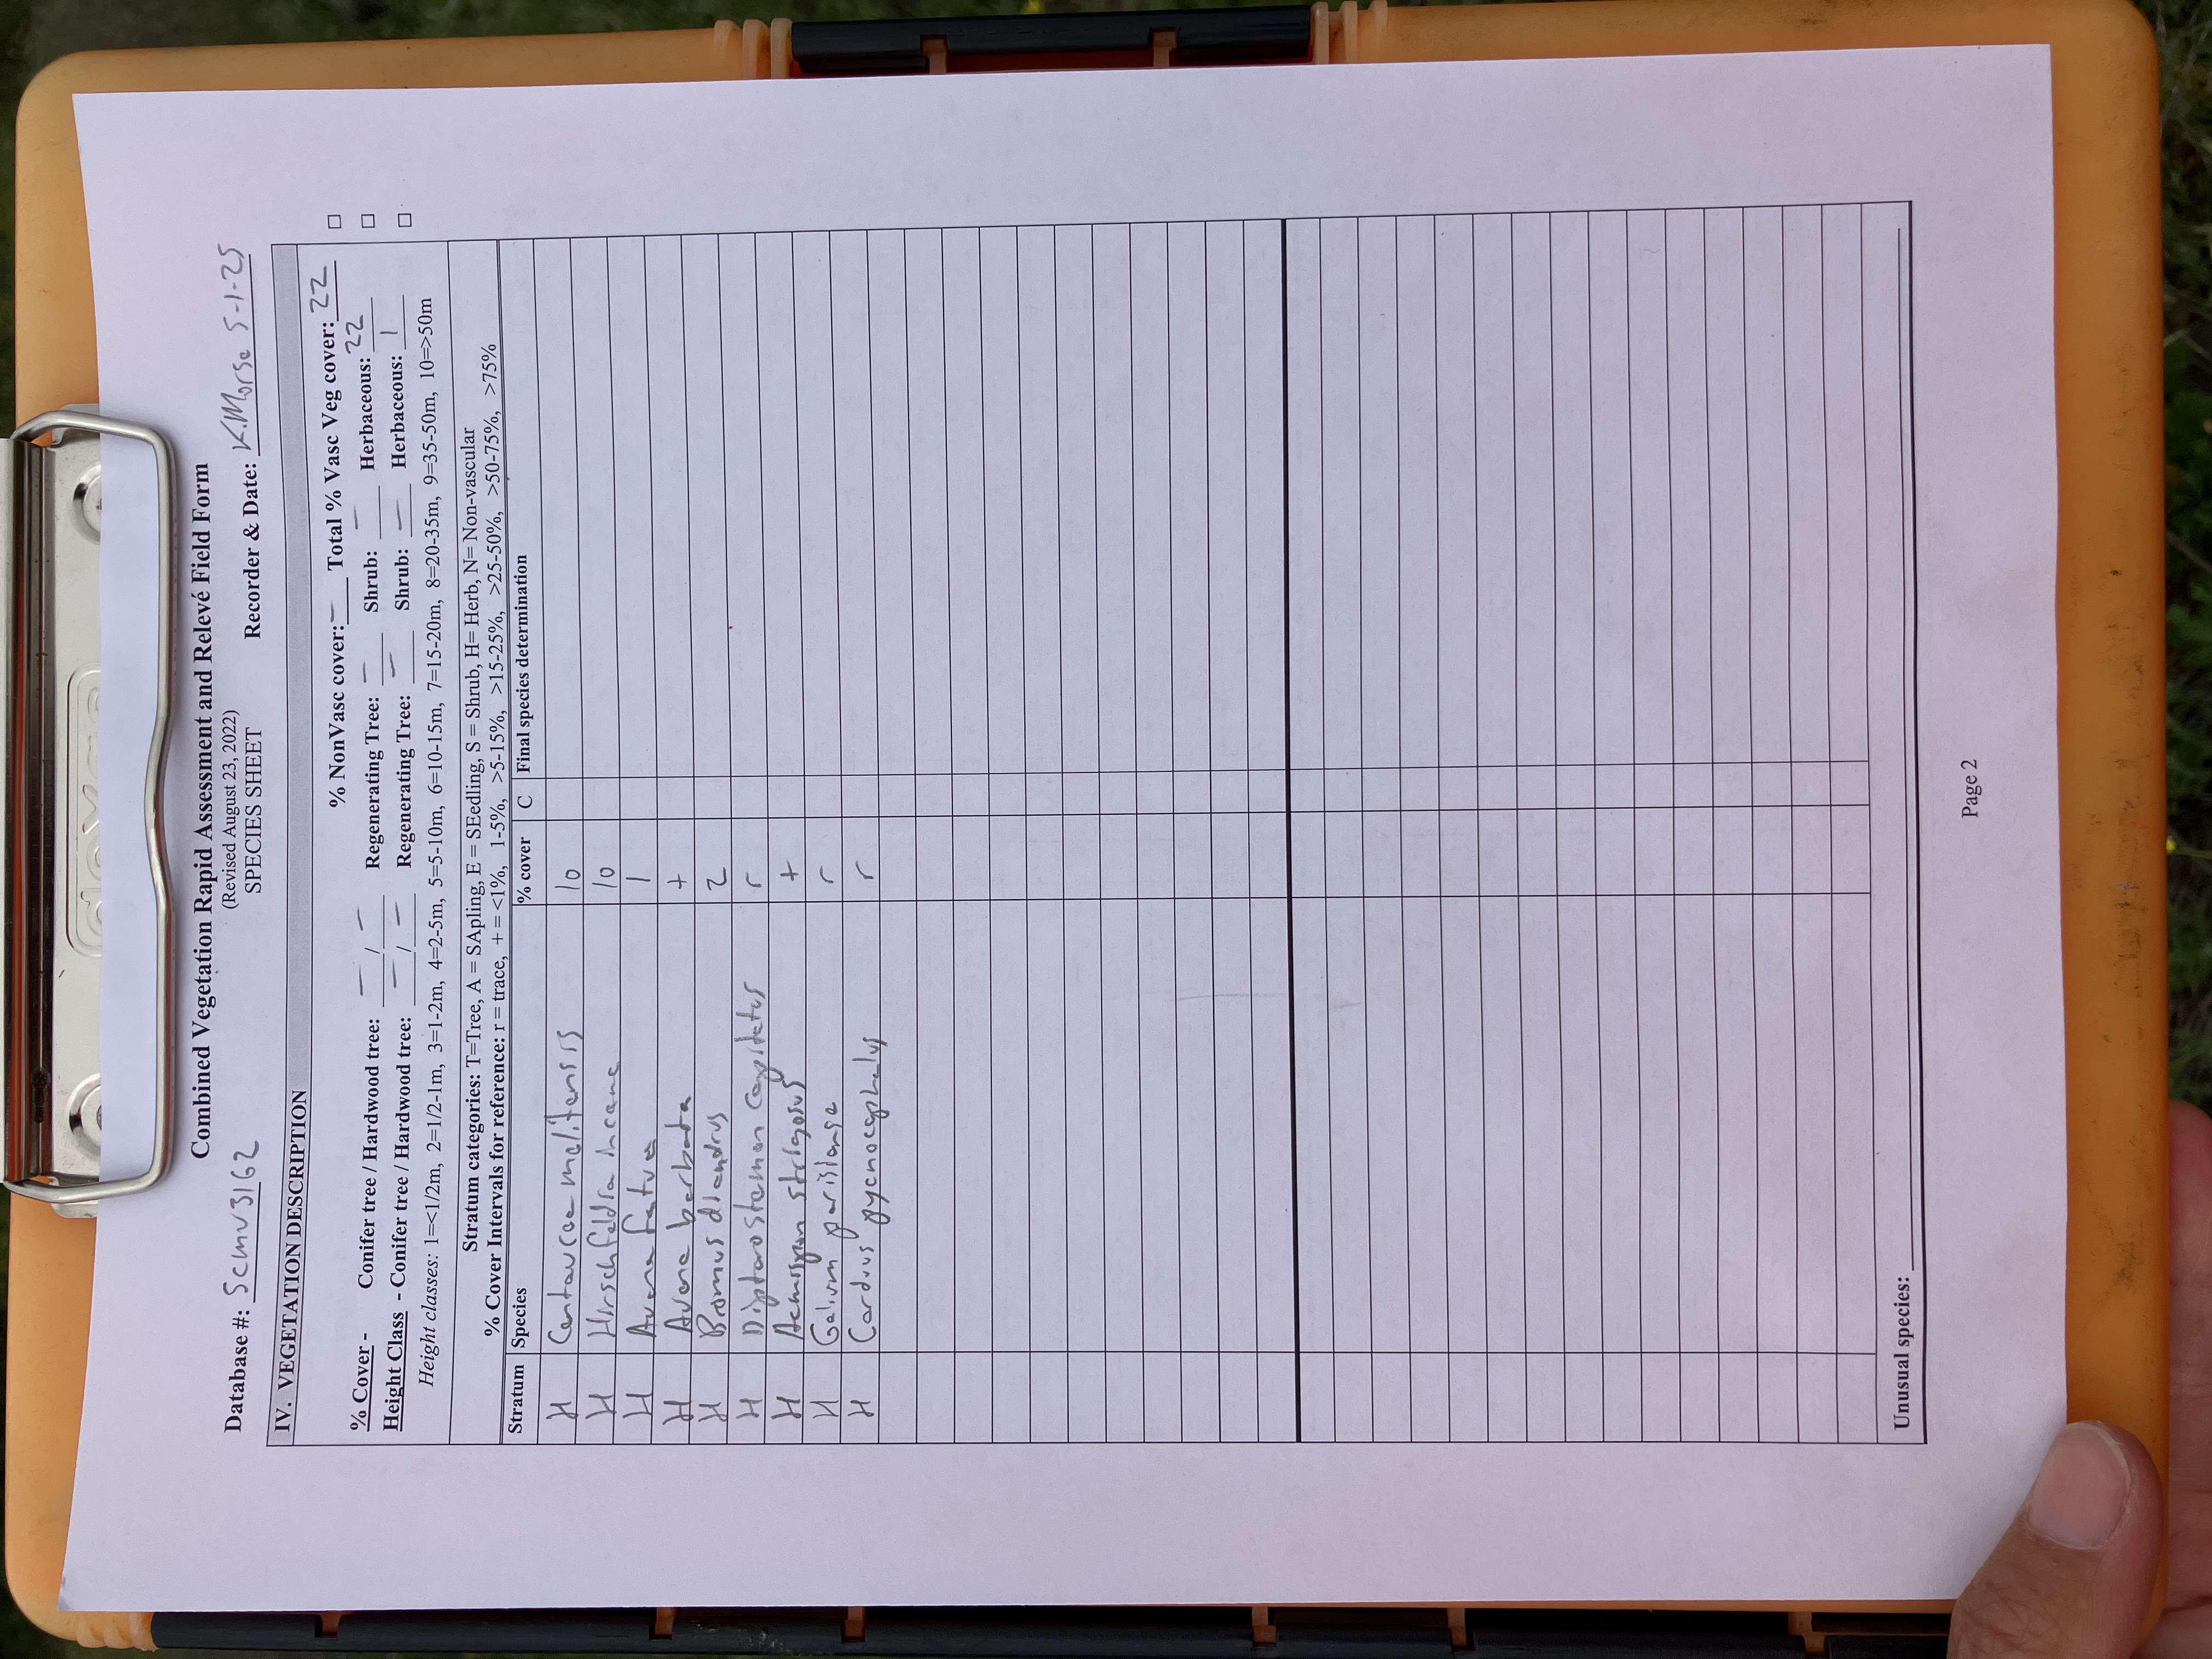 Combined Vegetation Rapid Assessment and Relevé Field Form
(Revised August 23, 2022)
SPECIES SHEET
Database #: Scmv3162 Recorder & Date: K. Morse 5-1-25
IV. VEGETATION DESCRIPTION
% NonVasc cover: – Total % Vasc Veg cover: 22 □
% Cover - Conifer tree / Hardwood tree: – / – Regenerating Tree: – Shrub: – Herbaceous: 22 □
Height Class - Conifer tree / Hardwood tree: – / – Regenerating Tree: – Shrub: – Herbaceous: 1 □
Height classes: 1=<1/2m, 2=1/2-1m, 3=1-2m, 4=2-5m, 5=5-10m, 6=10-15m, 7=15-20m, 8=20-35m, 9=35-50m, 10=>50m
Stratum categories: T=Tree, A = SApling, E = SEedling, S = Shrub, H= Herb, N= Non-vascular
% Cover Intervals for reference: r = trace, + = <1%, 1-5%, >5-15%, >15-25%, >25-50%, >50-75%, >75%
Stratum Species % cover C Final species determination
H Centaurea melitensis 10
H Hirschfeldia incana 10
H Avena fatua 1
H Avena barbata +
H Bromus diandrus 2
H Dipterostemon capitatus r
H Acmispon strigosus +
H Galium parisiense r
H Carduus pycnocephalus r
Unusual species:
Page 2